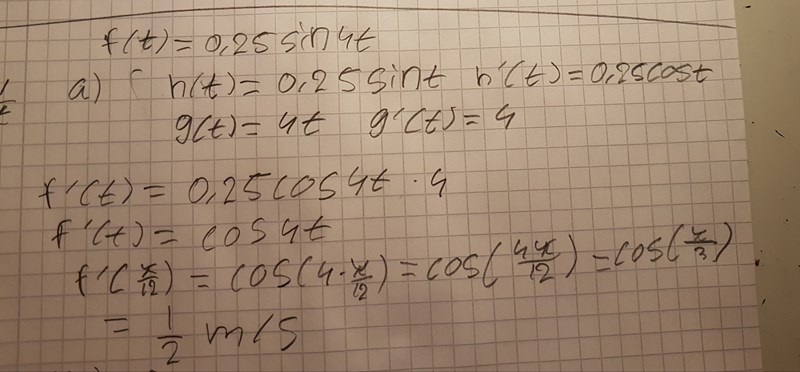 f(t) = 0,25 sin 4t
a) h(t) = 0,25 sin t h'(t) = 0,25 cos t
g(t) = 4t g'(t) = 4
f'(t) = 0,25 cos 4t · 4
f'(t) = cos 4t
f'(π/12) = cos(4·π/12) = cos(4π/12) = cos(π/3)
= 1/2 m/s